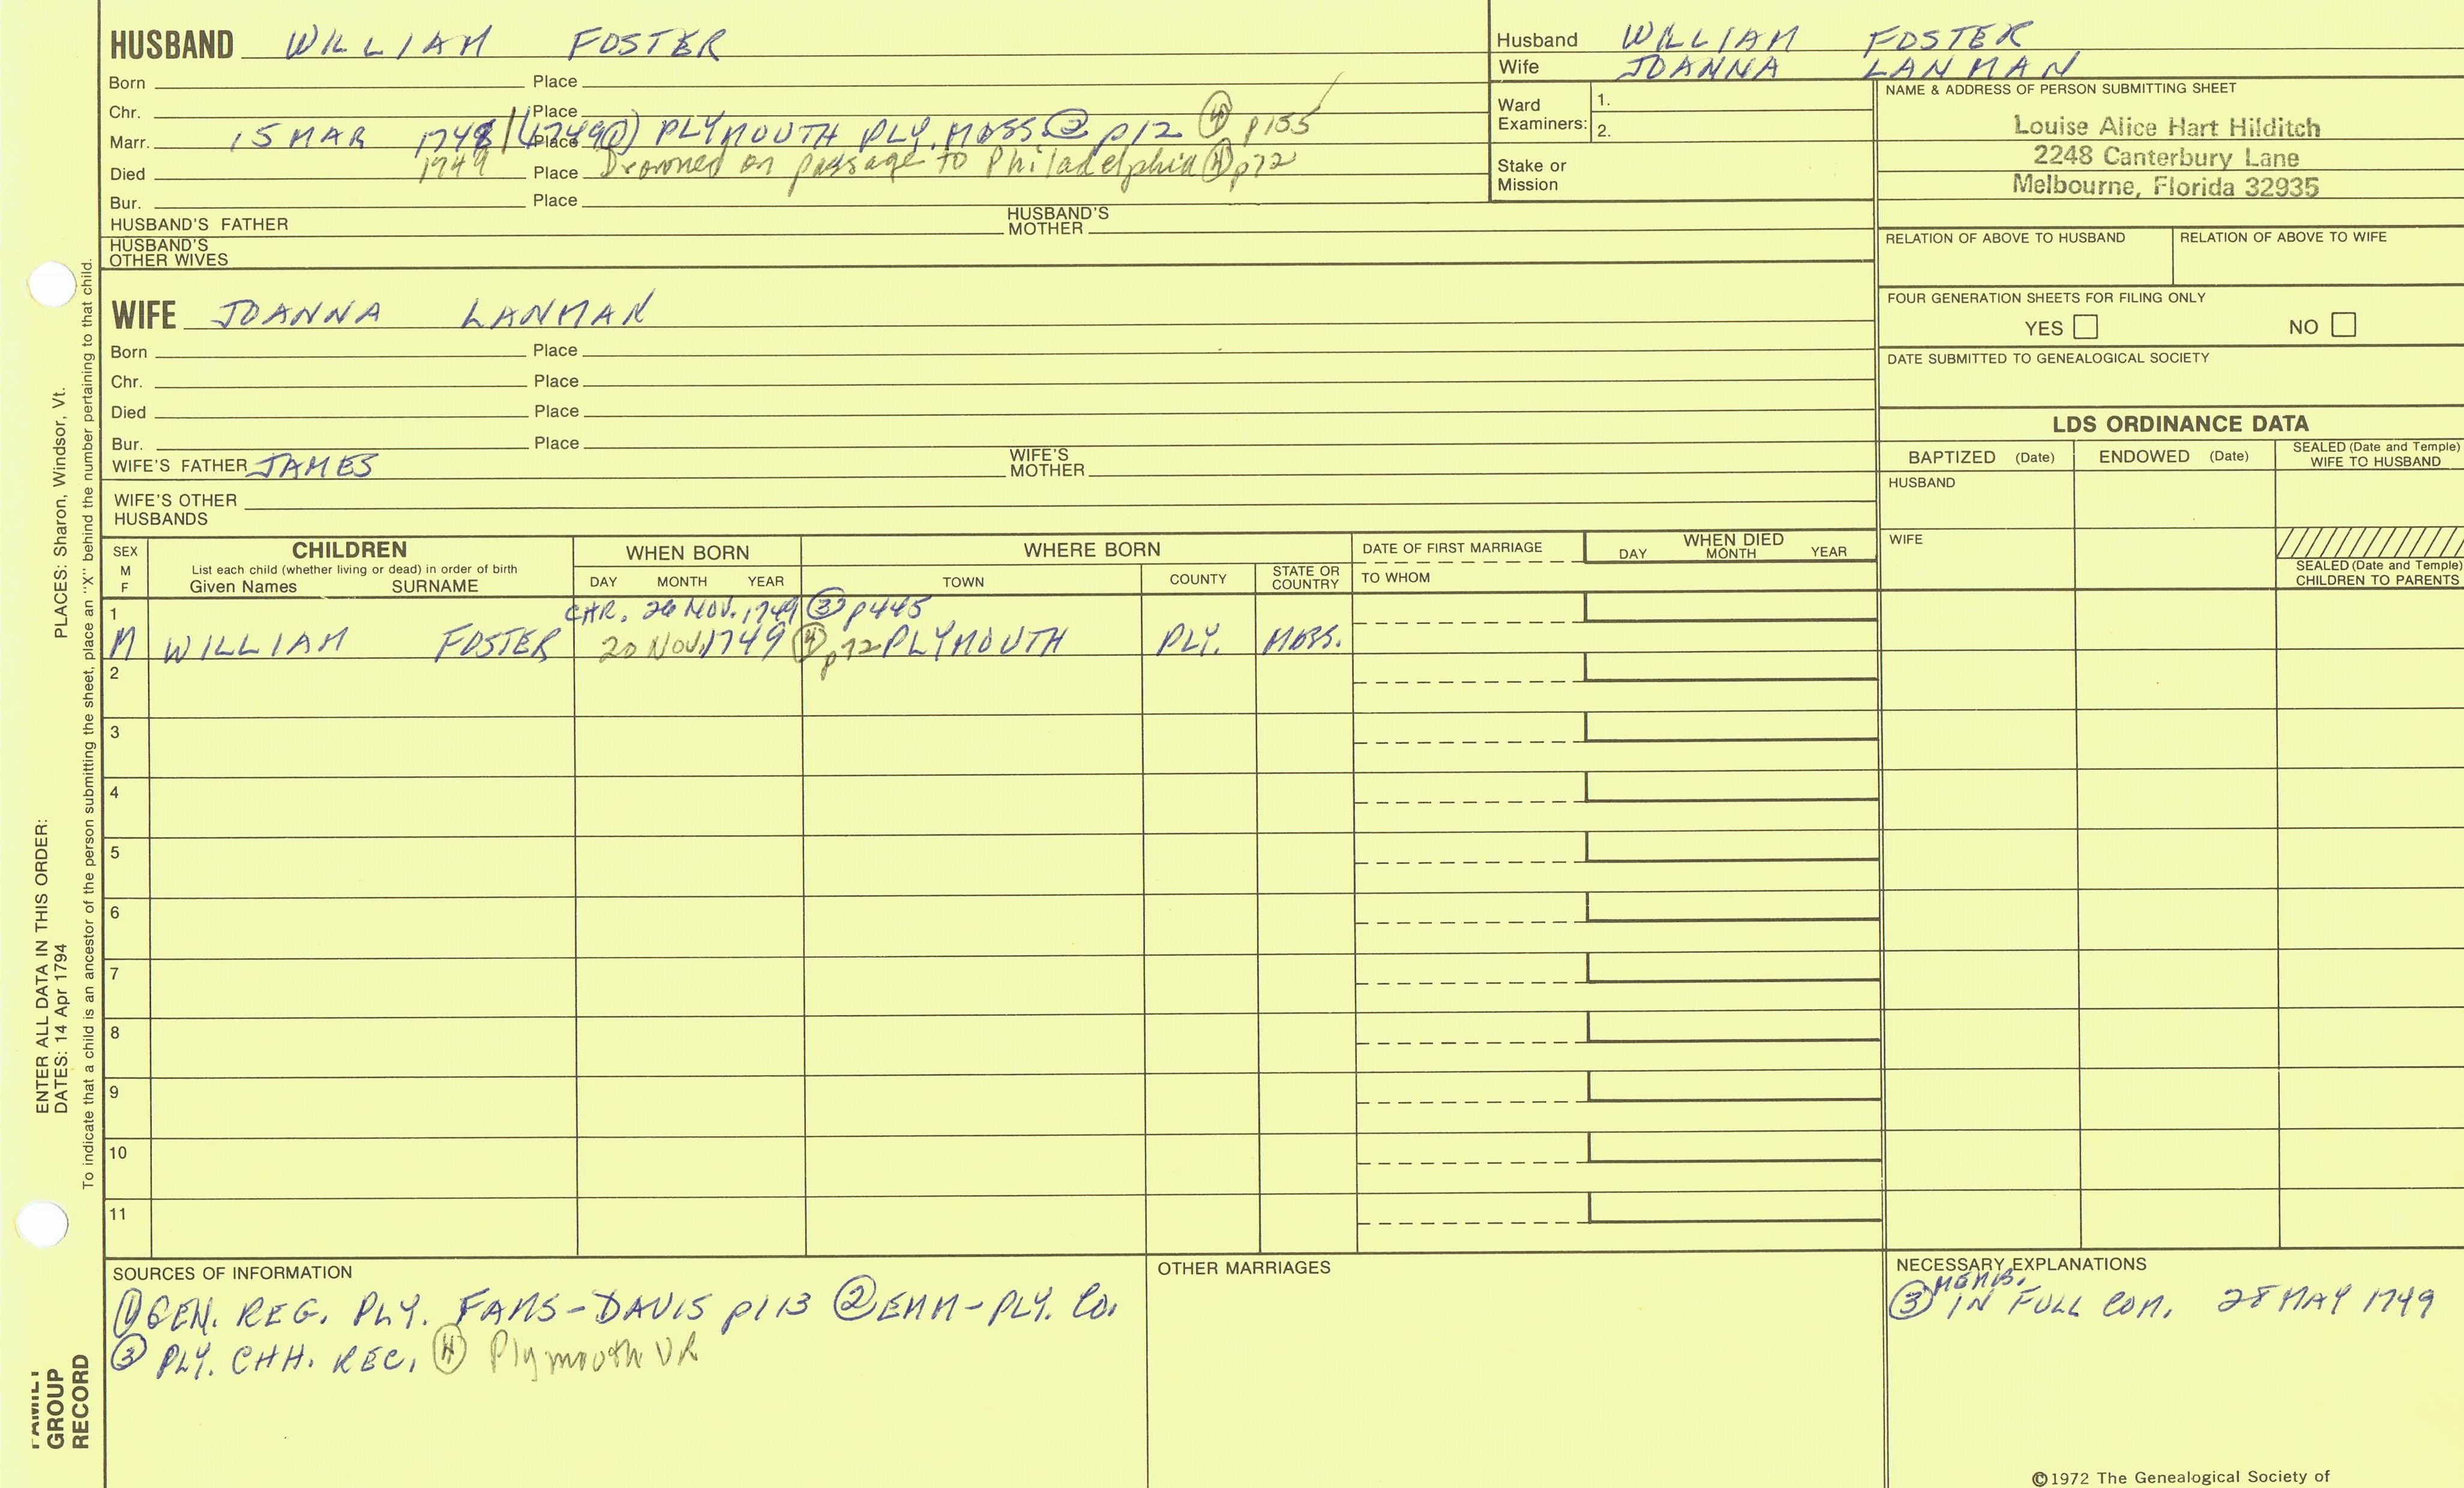 HUSBAND WILLIAM FOSTER
Born Place
Chr. Place
Marr. 15 MAR 1748/(1749①) Place PLYMOUTH PLY. MASS. ② p12 ④ p155
Died 1749 Place Drowned on passage to Philadelphia ④ p72
Bur. Place
HUSBAND'S FATHER HUSBAND'S MOTHER
HUSBAND'S OTHER WIVES
WIFE JOANNA LANMAN
Born Place
Chr. Place
Died Place
Bur. Place
WIFE'S FATHER JAMES WIFE'S MOTHER
WIFE'S OTHER HUSBANDS
Husband WILLIAM FOSTER
Wife JOANNA LANMAN
Ward Examiners: 1.
2.
Stake or Mission
NAME & ADDRESS OF PERSON SUBMITTING SHEET
Louise Alice Hart Hilditch
2248 Canterbury Lane
Melbourne, Florida 32935
RELATION OF ABOVE TO HUSBAND RELATION OF ABOVE TO WIFE
FOUR GENERATION SHEETS FOR FILING ONLY
YES NO
DATE SUBMITTED TO GENEALOGICAL SOCIETY
LDS ORDINANCE DATA
BAPTIZED (Date) ENDOWED (Date) SEALED (Date and Temple) WIFE TO HUSBAND
HUSBAND
WIFE
SEALED (Date and Temple) CHILDREN TO PARENTS
SEX M F
CHILDREN
List each child (whether living or dead) in order of birth
Given Names SURNAME
WHEN BORN
DAY MONTH YEAR
WHERE BORN
TOWN COUNTY STATE OR COUNTRY
DATE OF FIRST MARRIAGE
TO WHOM
WHEN DIED
DAY MONTH YEAR
1 CHR. 26 NOV. 1749 ③ p445
M WILLIAM FOSTER 20 NOV. 1749 ④ p72 PLYMOUTH PLY. MASS.
2
3
4
5
6
7
8
9
10
11
SOURCES OF INFORMATION
① GEN. REG. PLY. FAMS-DAVIS p113 ② EMM-PLY. CO.
③ PLY. CHH. REC. ④ Plymouth VR
OTHER MARRIAGES
NECESSARY EXPLANATIONS
MEMB.
③ IN FULL COM. 28 MAY 1749
©1972 The Genealogical Society of
PLACES: Sharon, Windsor, Vt.
To indicate that a child is an ancestor of the person submitting the sheet, place an "X" behind the number pertaining to that child.
ENTER ALL DATA IN THIS ORDER:
DATES: 14 Apr 1794
FAMILY
GROUP
RECORD